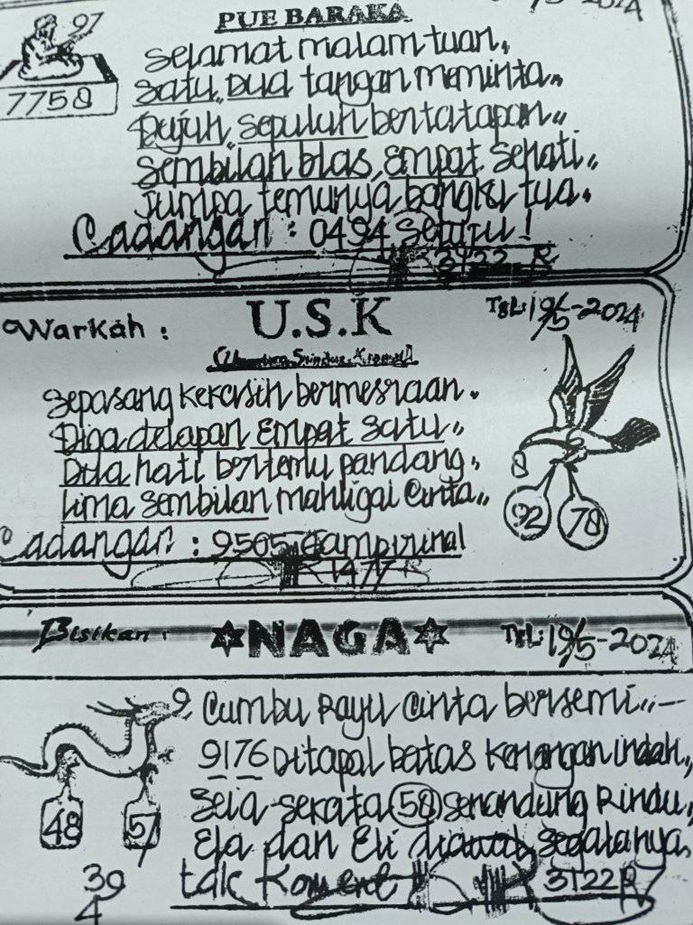 PUE BARAKA
97
7758
Selamat malam tuan.
Satu, Dua tangan meminta..
Dujuh, sepuluh bertatapan..
Sembilan blas, empat sehati..
Jumpa temunya bangku tua.
Cadangan : 0494
3922 R
Warkah :
U.S.K
TGL: 19/5-2024
Sepasang kekasih bermesraan.
Diga delapan Empat satu..
Dua hati bertemu pandang,
Lima sembilan mahligai Cinta..
8
92
78
Cadangan : 9505
1477 R
Bisikan :
NAGA
TGL: 19/5-2024
9. Cumbu Rayu Cinta bersemi..
9176 Ditapal batas Kenangan indah,
Seia-sekata 58 senandung Rindu,
Ela dan Eli segalanya
48
57
39
4
tak
3122 R